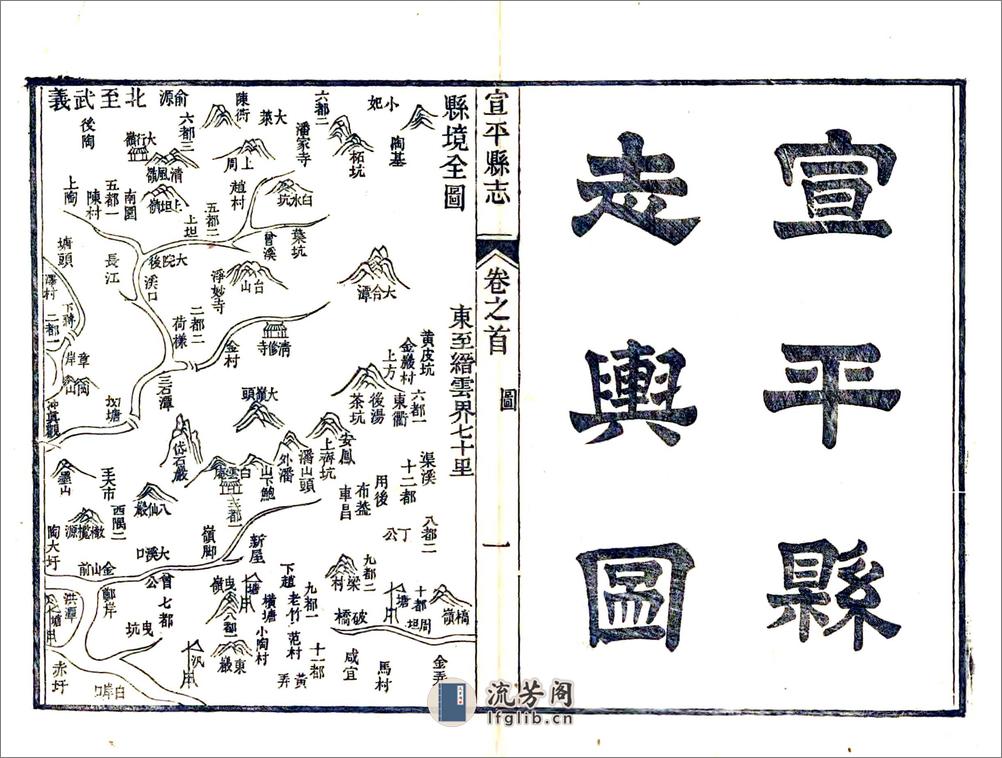 宣平縣
志輿圖
宣平縣志
卷之首
圖
一
縣境全圖
東至縉雲界七十里
北至武義
小妃
陶基
六都二
柘坑
潘家寺
大萊
陳街
上周
俞源
六都三
後陶
大行嶺
清風嶺
上坦嶺
白水坑
趙村
五都二
上坦
葉坑
曾溪
南圓
五都一
陳村
上陶
塘頭
長江
大院後
溪口
淨妙寺
台山
大合潭
二都二
荷樣
金村
清修寺
三石潭
澤村
下蔣
二都一
沖眞觀
大嶺頭
岱石巖
黃皮坑
金巖村
上方
六都一
東衢
後湯
茶坑
安鳳
上濟坑
潘山頭
外潘
山下鮑
白雲
渠溪
十二都
用後
車昌
八都二
丁公
墨山
王大市
八仙巖
西隅二
橄欖源
陶大圩
嶺脚
新屋
大溪口
金山前
曾公
七都
鄭岸
洪潭
曳坑
赤圩
白岸口
下趙
曳嶺
塘
八都一
東巖
汛
九都一
老竹
橫塘
范村
小陶村
十一都
黃弄
九都二
梁村
破橋
塘
十都
周坦
橋嶺
咸宜
馬村
金弄
流芳阁
lfglib.cn